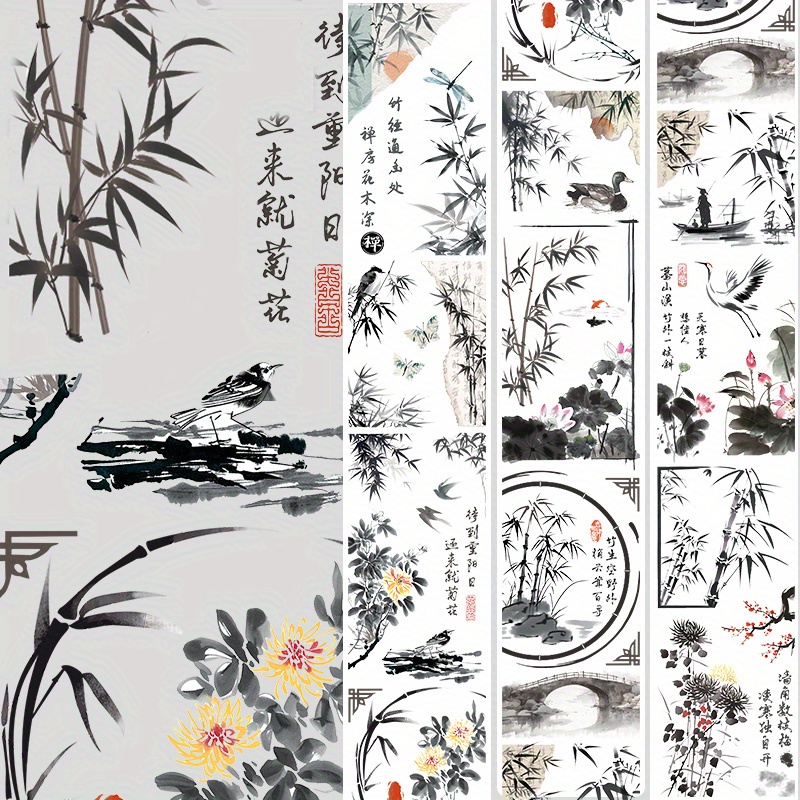 待到重阳日
还来就菊花
竹径通幽处
禅房花木深
禅
待到重阳日
还来就菊花
竹生空野外
梢云耸百寻
暮山溪
竹外一枝斜
想佳人
天寒日暮
墙角数枝梅
凌寒独自开